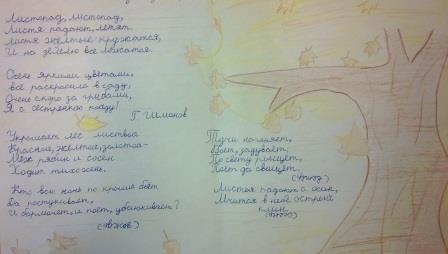 Листопад, листопад,
Листья падают, летят.
Листья жёлтые кружатся,
И на землю все ложатся.
Осень яркими цветами,
всё раскрасила в саду,
Очень скоро за грибами,
Я с сестрёнкою пойду!
Г. Шманов
Украшает лес листвою
Красная, жёлтая, золотою-
Меж рябин и сосен
Ходит тихо осень.
Кто всю ночь по крыше бьёт
Да постукивает,
И бормочет, и поёт, убаюкивает?
(дождь)
Тучи нагоняет,
Воет, задувает.
По свету рыщет,
Поёт да свищет.
Листья падают с осин,
Мчится в небе острый
клин.